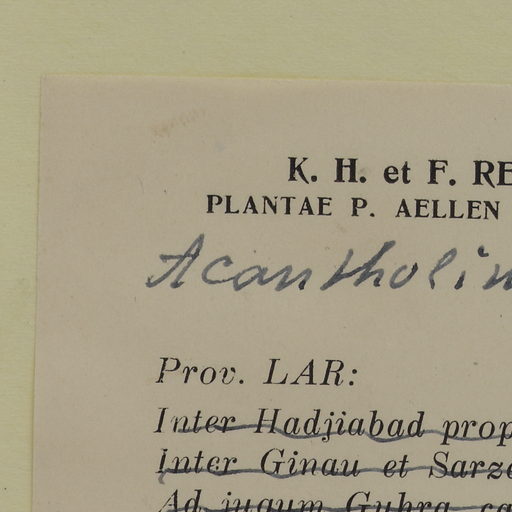 K. H. et F. RE
PLANTAE P. AELLEN
Acantholim
Prov. LAR:
Inter Hadjiabad prop
Inter Ginau et Sarze
Ad jugum Guhra ca